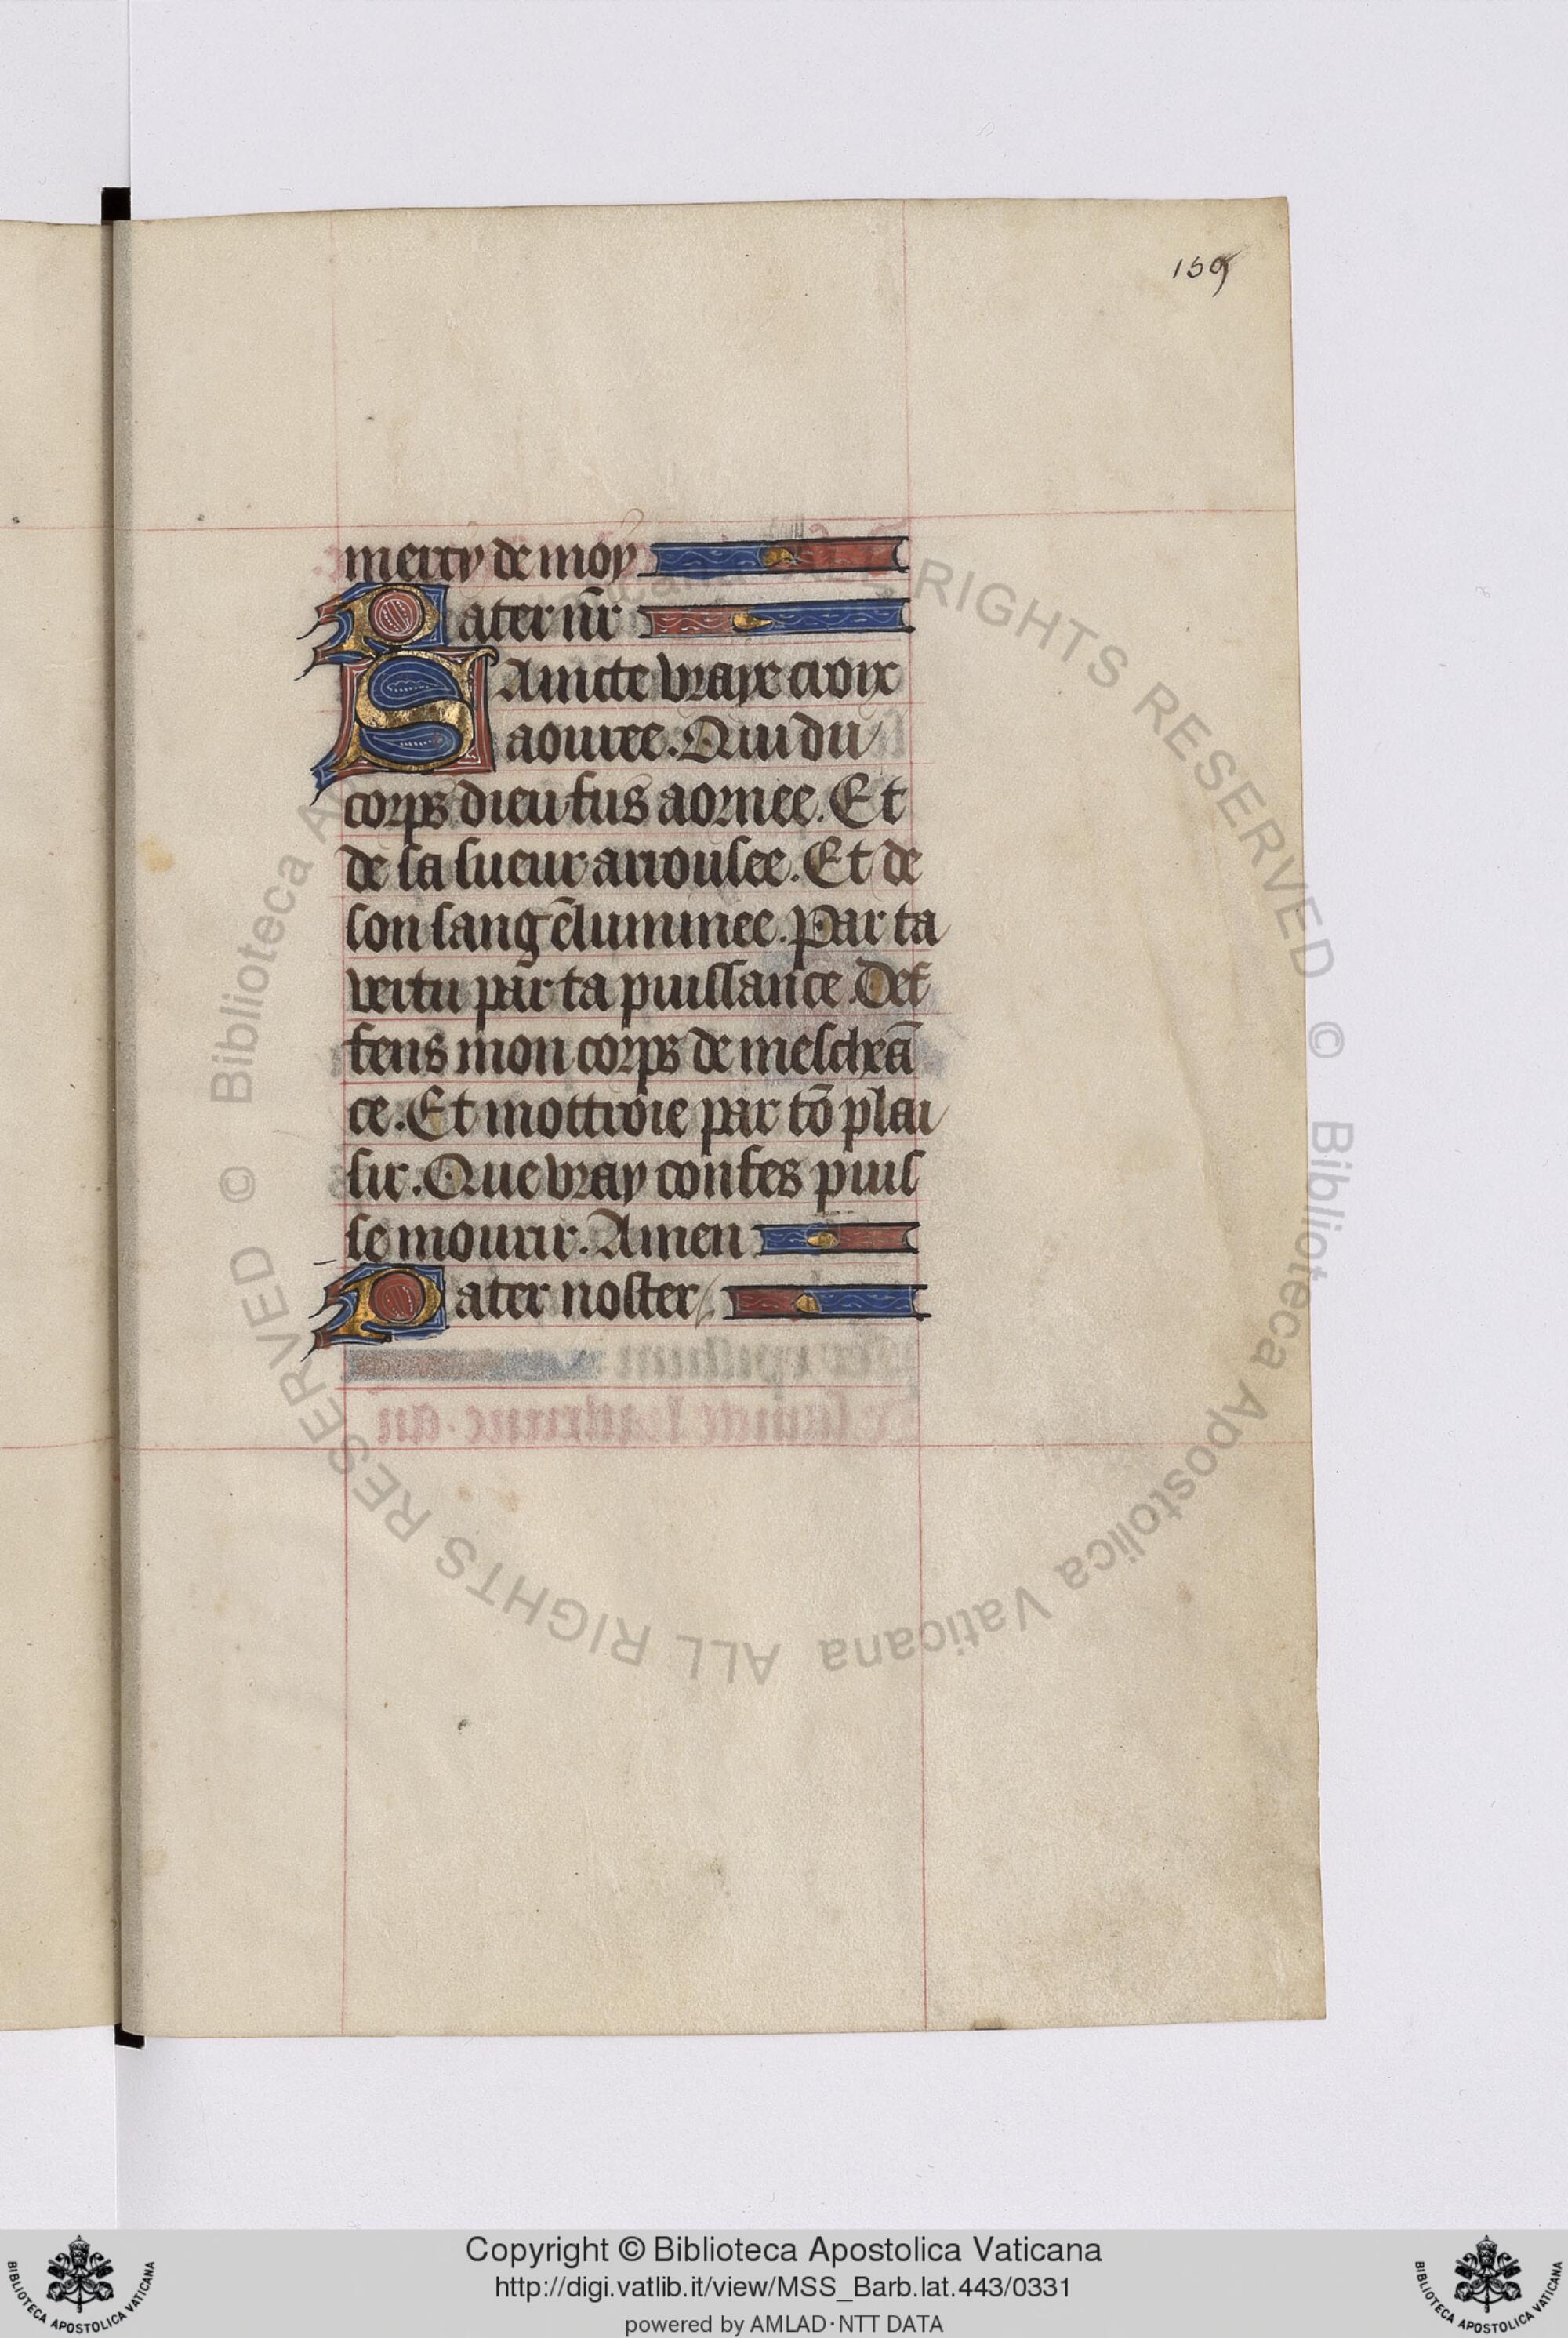 159
mercy de moy
Pater nr̄
SAincte vraye croix
aouree. Qui du
corps dieu fus aornee. Et
de sa sueur arrousee. Et de
son sang ēluminee. Par ta
vertu par ta puissance. Def
fens mon corps de mescheā
ce. Et mottroie par tō plai
sir. Que vray confes puis
se mourir. Amen
Pater noster
Copyright © Biblioteca Apostolica Vaticana
http://digi.vatlib.it/view/MSS_Barb.lat.443/0331
powered by AMLAD·NTT DATA
BIBLIOTECA APOSTOLICA VATICANA
BIBLIOTECA APOSTOLICA VATICANA
© Biblioteca Apostolica Vaticana ALL RIGHTS RESERVED © Biblioteca Apostolica Vaticana ALL RIGHTS RESERVED